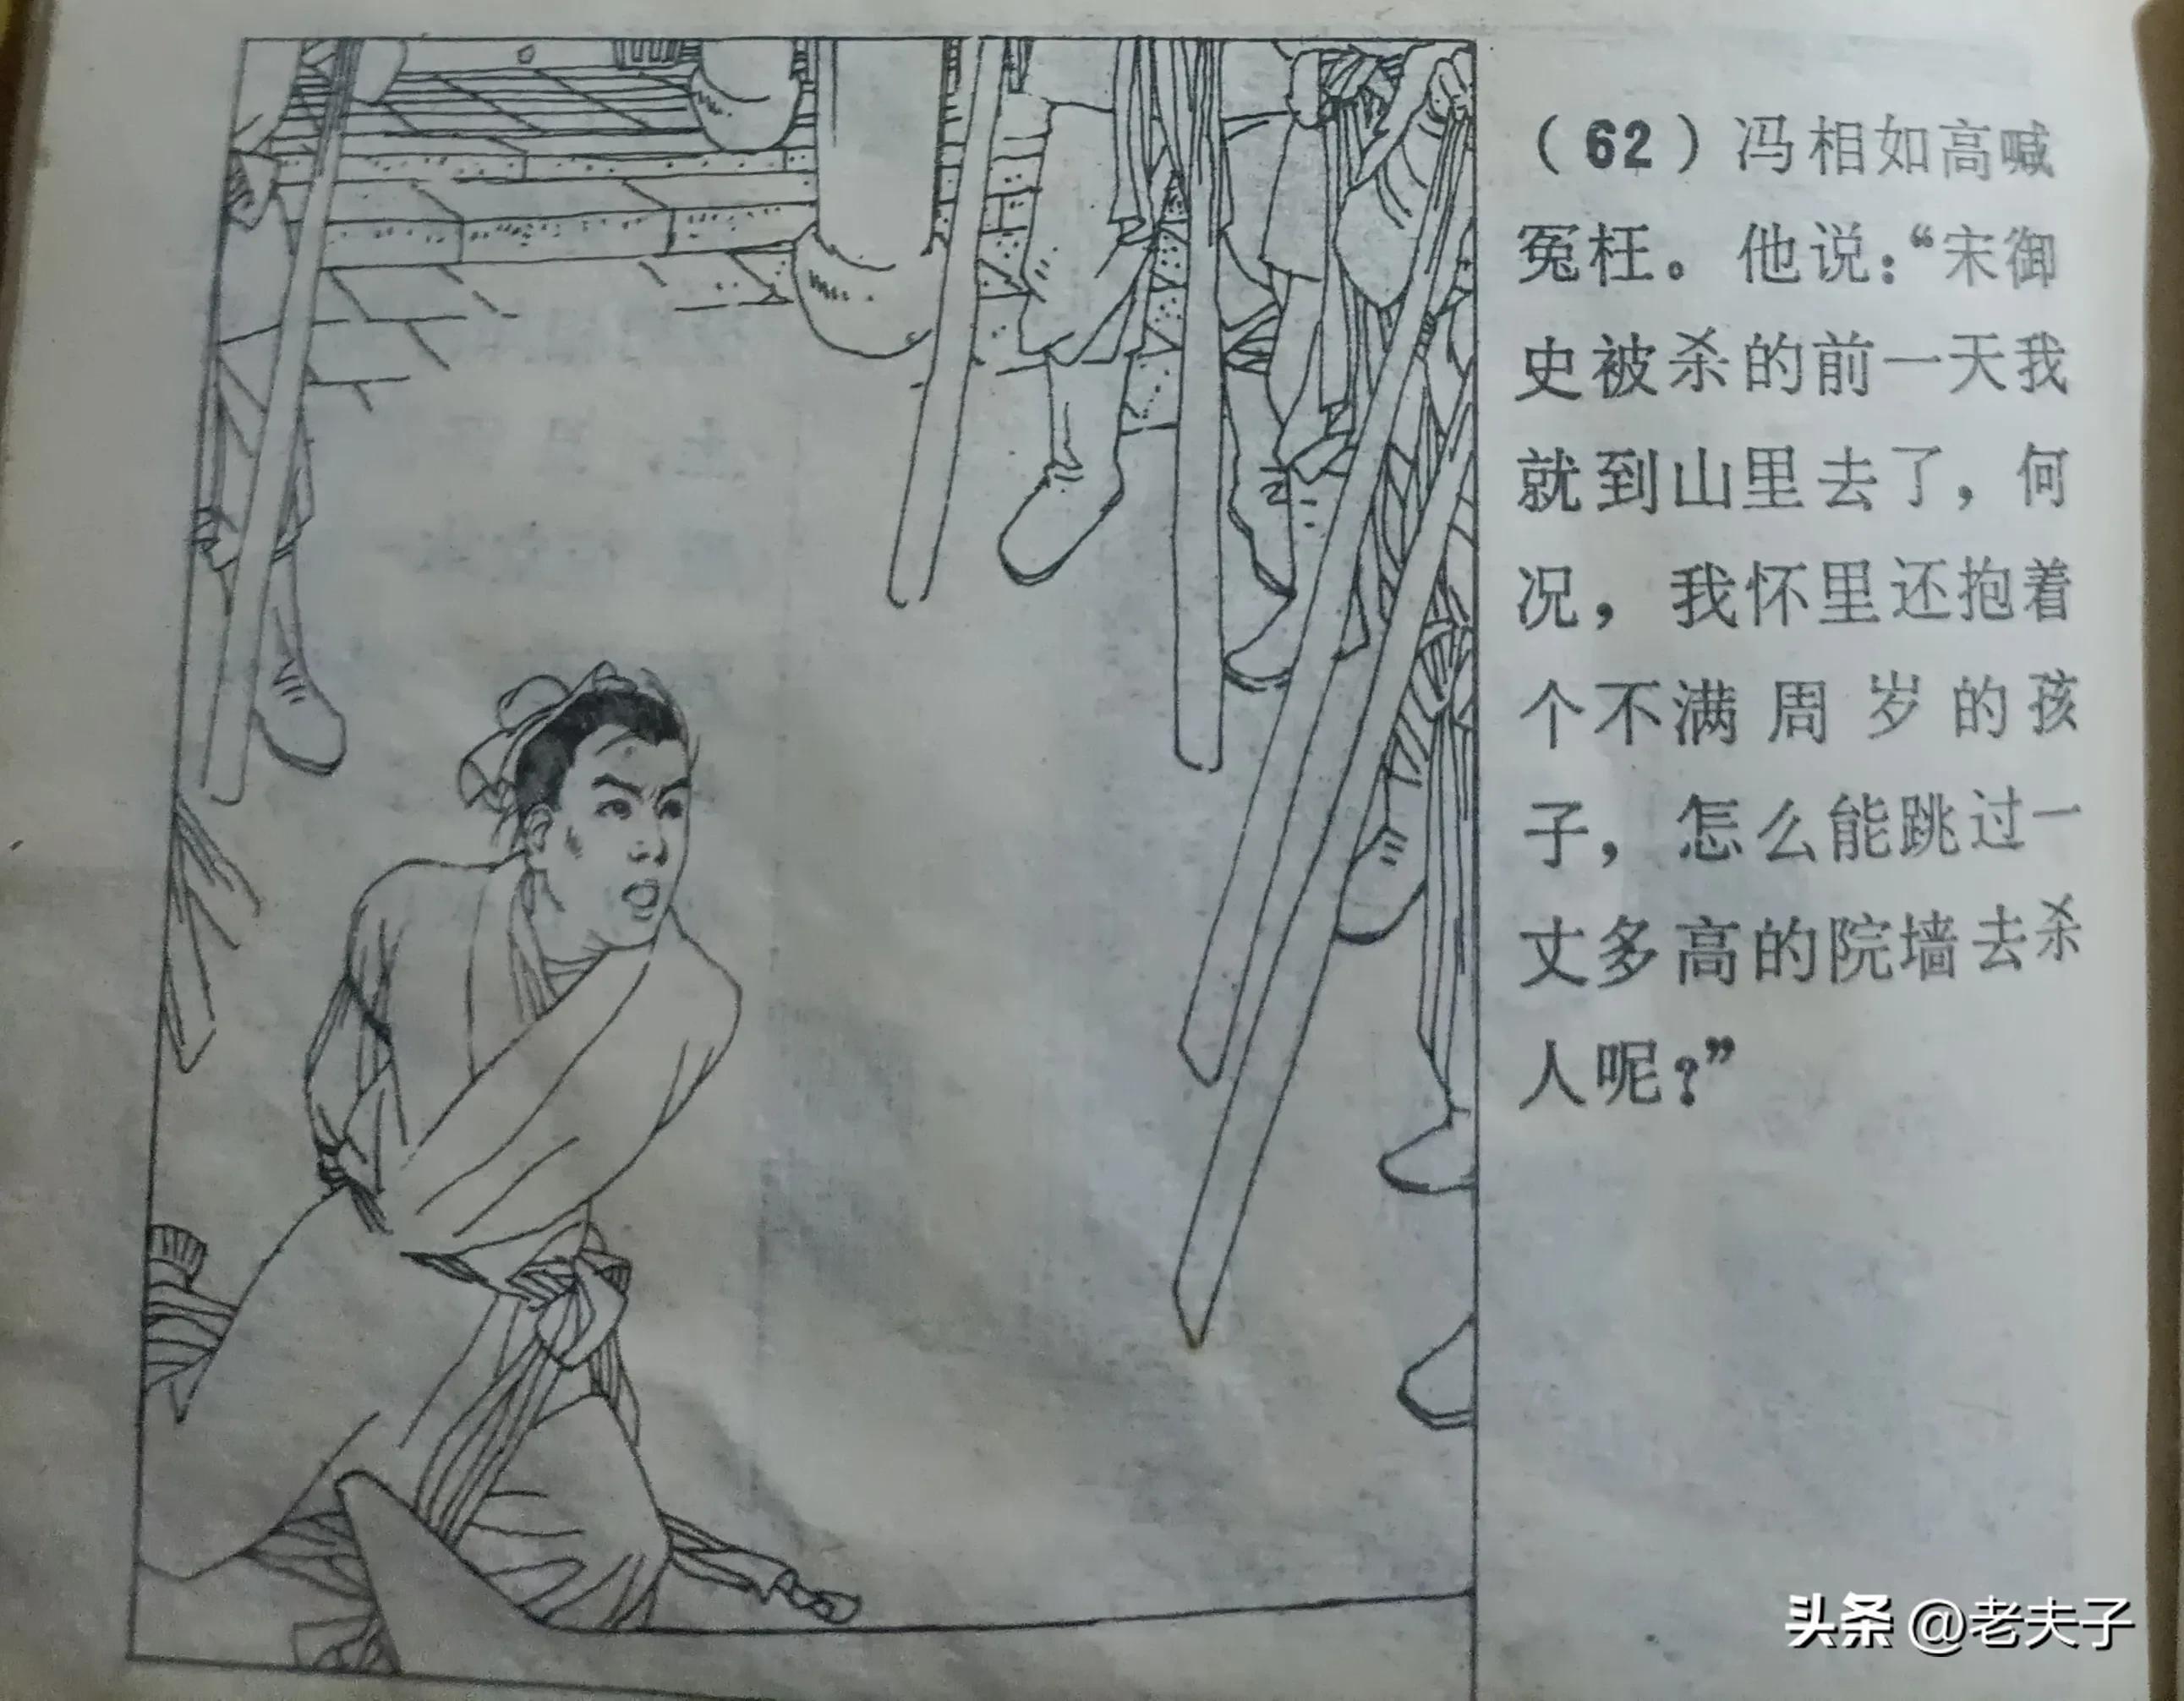 （62）冯相如高喊
冤枉。他说：“宋御
史被杀的前一天我
就到山里去了，何
况，我怀里还抱着
个不满周岁的孩
子，怎么能跳过一
丈多高的院墙去杀
人呢？”
头条 @老夫子